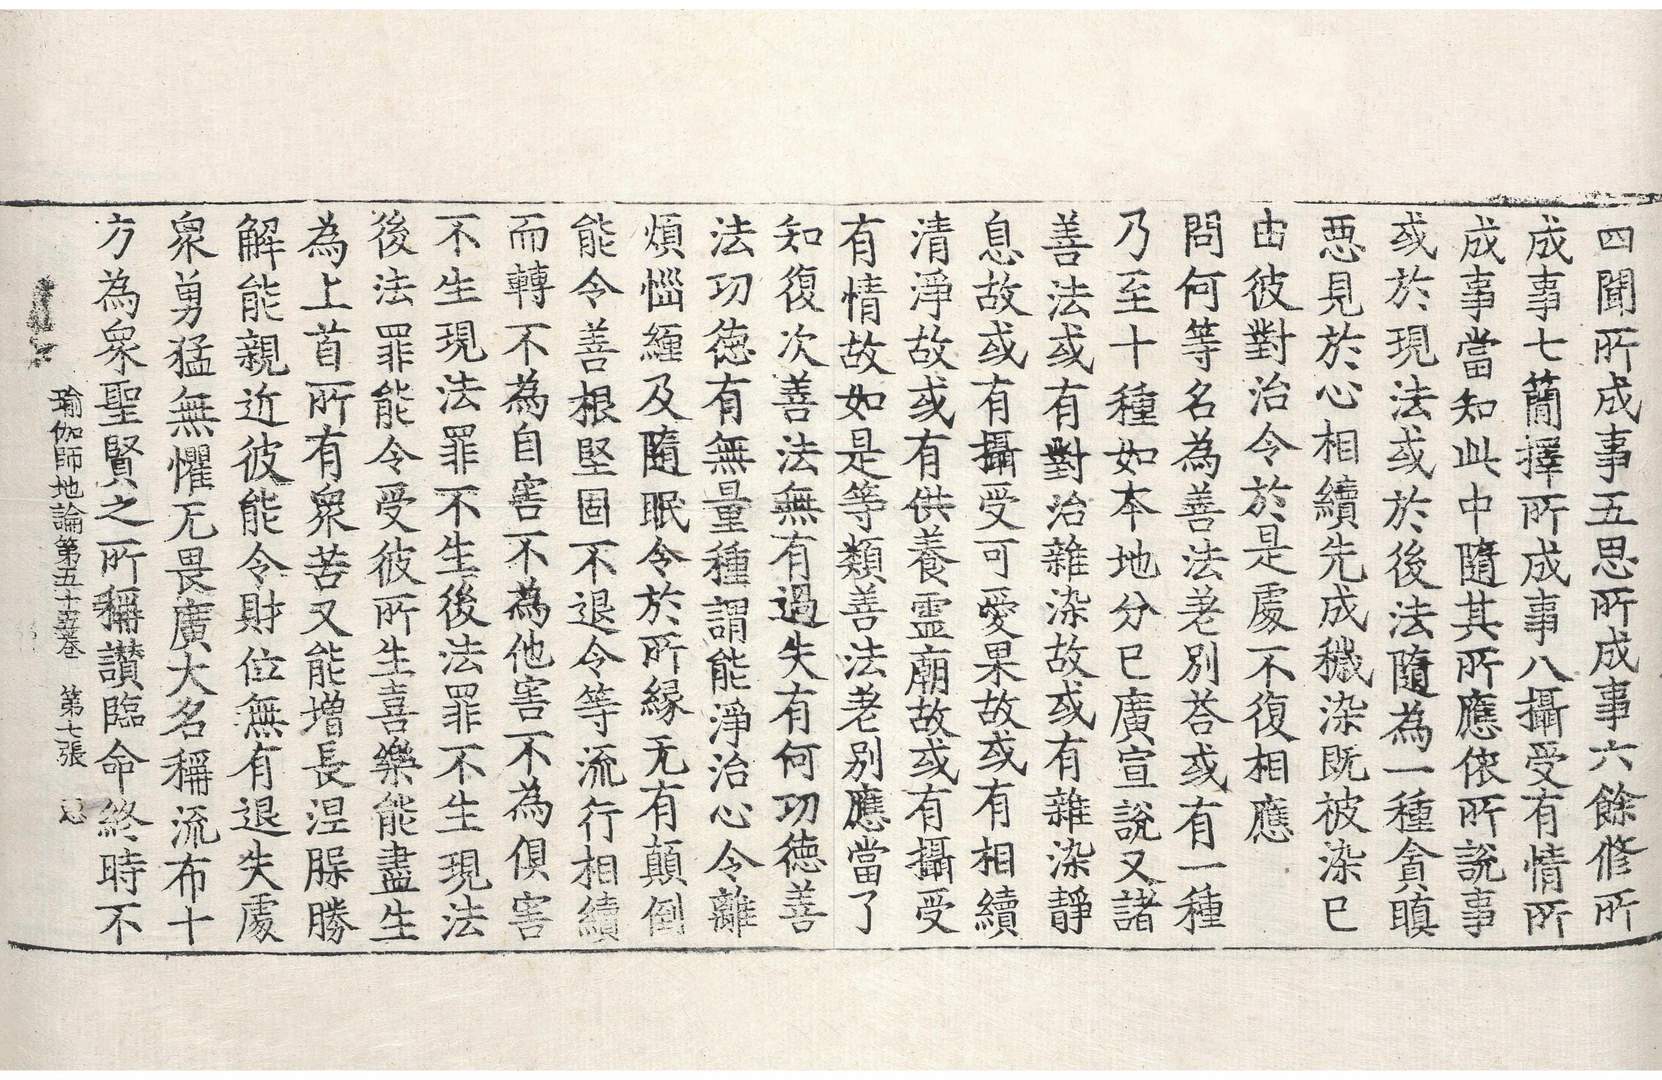 四聞所成事五思所成事六餘修所
成事七蕳擇所成事八攝受有情所
成事當知此中隨其所應依所說事
或於現法或於後法隨為一種貪瞋
惡見於心相續先成穢染既被染已
由彼對治令於是處不復相應
問何等名為善法差別荅或有一種
乃至十種如本地分已廣宣說又諸
善法或有對治雜染故或有雜染靜
息故或有攝受可愛果故或有相續
清淨故或有供養靈廟故或有攝受
有情故如是等類善法差別應當了
知復次善法無有過失有何功德善
法功德有無量種謂能淨治心令離
煩惱纏及隨眠令於所緣无有顛倒
能令善根堅固不退令等流行相續
而轉不為自害不為他害不為俱害
不生現法罪不生後法罪不生現法
後法罪能令受彼所生喜樂能盡生
為上首所有眾苦又能增長涅槃勝
解能親近彼能令財位無有退失處
眾勇猛無懼无畏廣大名稱流布十
方為眾聖賢之所稱讚臨命終時不
瑜伽師地論第五十五卷　第七張